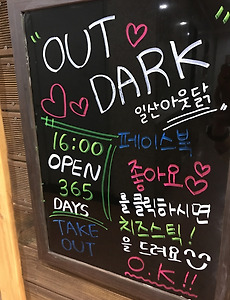 "OUT
DARK"
일산아웃닭
16:00
OPEN
365
DAYS
TAKE
OUT
페이스북
좋아요
를 클릭하시면
치즈스틱!
을 드려요
O.K!!